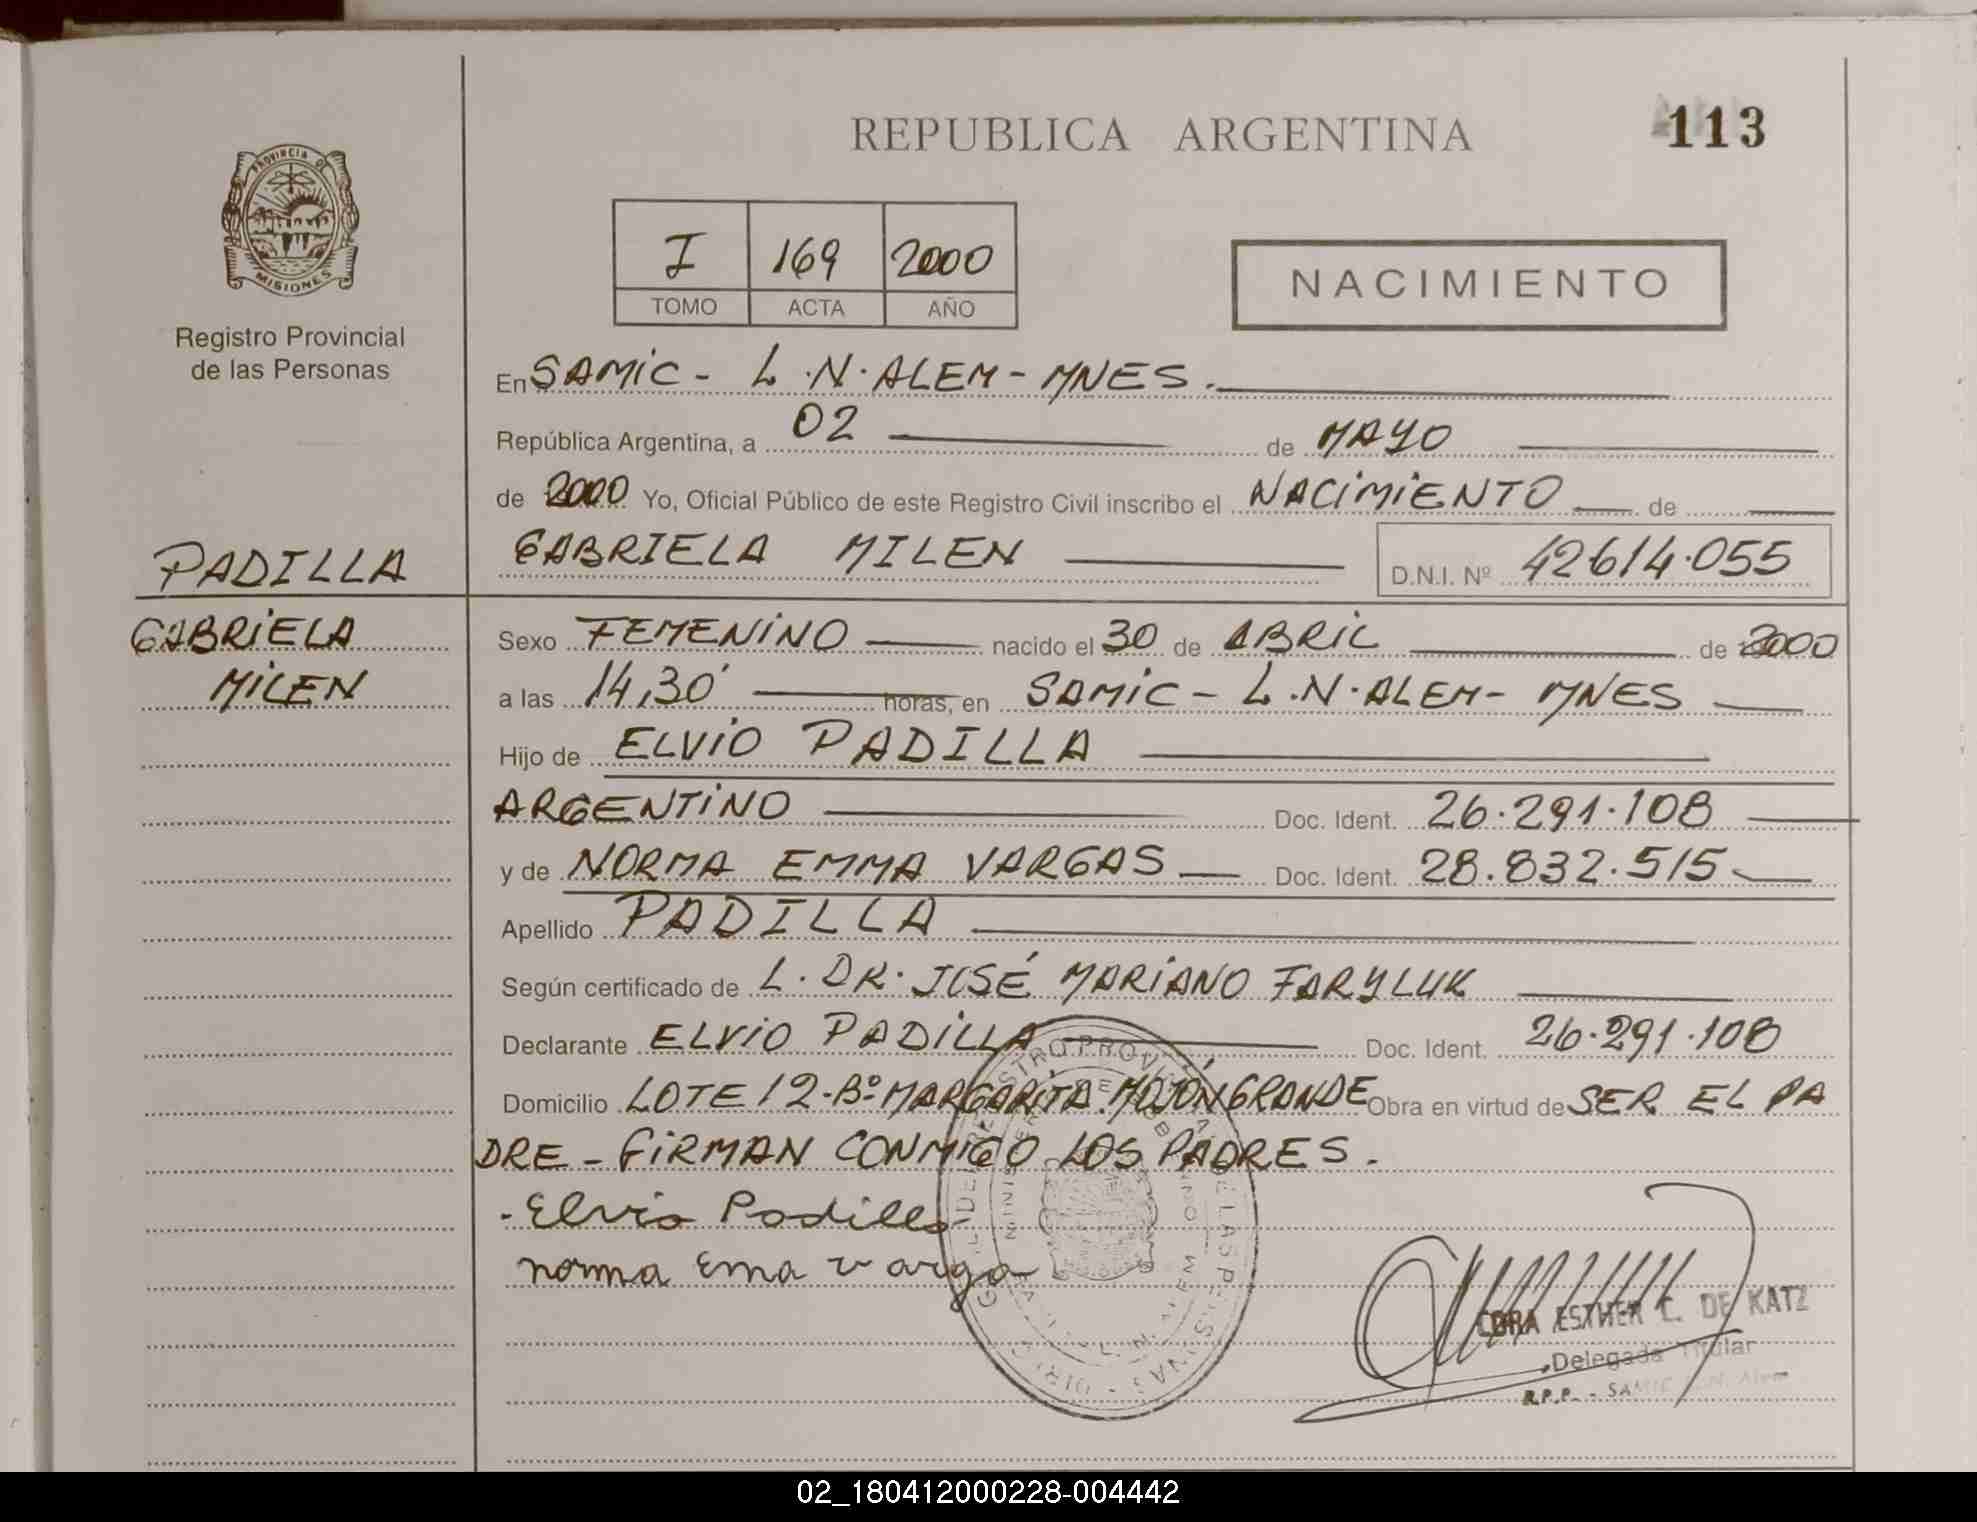 REPUBLICA ARGENTINA
113
PROVINCIA DE
MISIONES
Registro Provincial
de las Personas
I 169 2000
TOMO ACTA AÑO
NACIMIENTO
En SAMIC - L.N. ALEM - MNES.
República Argentina, a 02 de MAYO
de 2000 Yo, Oficial Público de este Registro Civil inscribo el NACIMIENTO de
GABRIELA MILEN D.N.I. Nº 42614.055
PADILLA
GABRIELA
MILEN
Sexo FEMENINO nacido el 30 de ABRIL de 2000
a las 14,30' horas, en SAMIC - L.N. ALEM - MNES
Hijo de ELVIO PADILLA
ARGENTINO Doc. Ident. 26.291.108
y de NORMA EMMA VARGAS Doc. Ident. 28.832.515
Apellido PADILLA
Según certificado de L. DR. JOSÉ MARIANO FARYLUK
Declarante ELVIO PADILLA Doc. Ident. 26.291.108
Domicilio LOTE 12-Bº MARGARITA. MOJÓN GRANDE Obra en virtud de SER EL PA
DRE - FIRMAN CONMIGO LOS PADRES.
- Elvio Padilla -
norma Ema varga
ESTHER C. DE KATZ
Delegada Titular
R.P.P. - SAMIC L.N. Alem
02_180412000228-004442